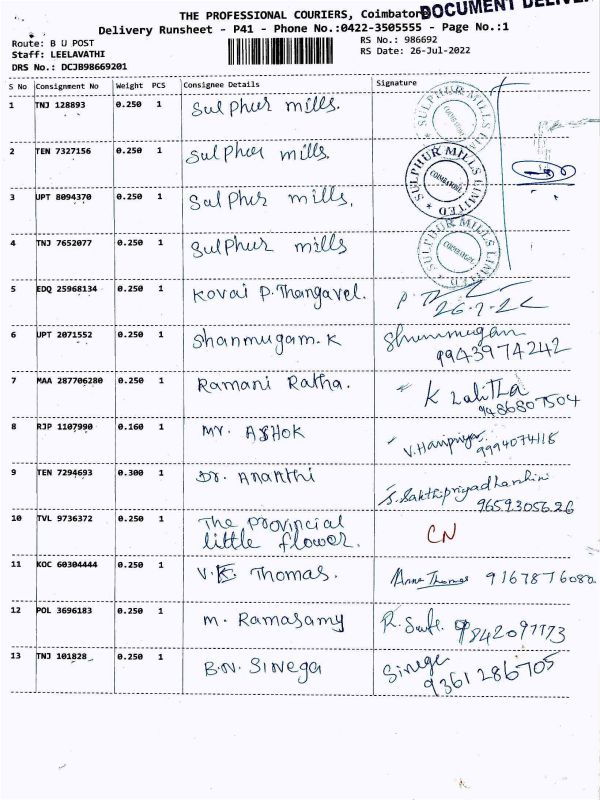 DOCUMENT
THE PROFESSIONAL COURIERS, Coimbatore
Delivery Runsheet - P41 - Phone No.:0422-3505555 - Page No.:1
Route: B U POST
RS No.: 986692
Staff: LEELAVATHI
RS Date: 26-Jul-2022
DRS No.: DCJB98669201
S No Consignment No Weight PCS Consignee Details Signature
1 TNJ 128893 0.250 1 Sulphur mills. SULPHUR MILLS LIMITED COIMBATORE
2 TEN 7327156 0.250 1 Sulphur mills. SULPHUR MILLS LIMITED COIMBATORE
3 UPT 8094370 0.250 1 Sulphur mills.
4 TNJ 7652077 0.250 1 Sulphur mills SULPHUR MILLS LIMITED COIMBATORE
5 EDQ 25968134 0.250 1 Kovai P. Thangavel.
26-7-22
6 UPT 2071552 0.250 1 Shanmugam. K Shunmugan
9943974242
7 MAA 287706280 0.250 1 Ramani Ratha. K Lalitha
9486807504
8 RJP 1107990 0.160 1 Mr. ASHOK V. Haripriya.
9994074118
9 TEN 7294693 0.300 1 Dr. Ananthi S. Sakthipriyadharshini
9659305626
10 TVL 9736372 0.250 1 The provincial
little flower. CN
11 KOC 60304444 0.250 1 V.K. Thomas. Anne Thomas 9167876080
12 POL 3696183 0.250 1 M. Ramasamy 9842097173
13 TNJ 101828 0.250 1 B.N. Sinega Sinega
9361286705